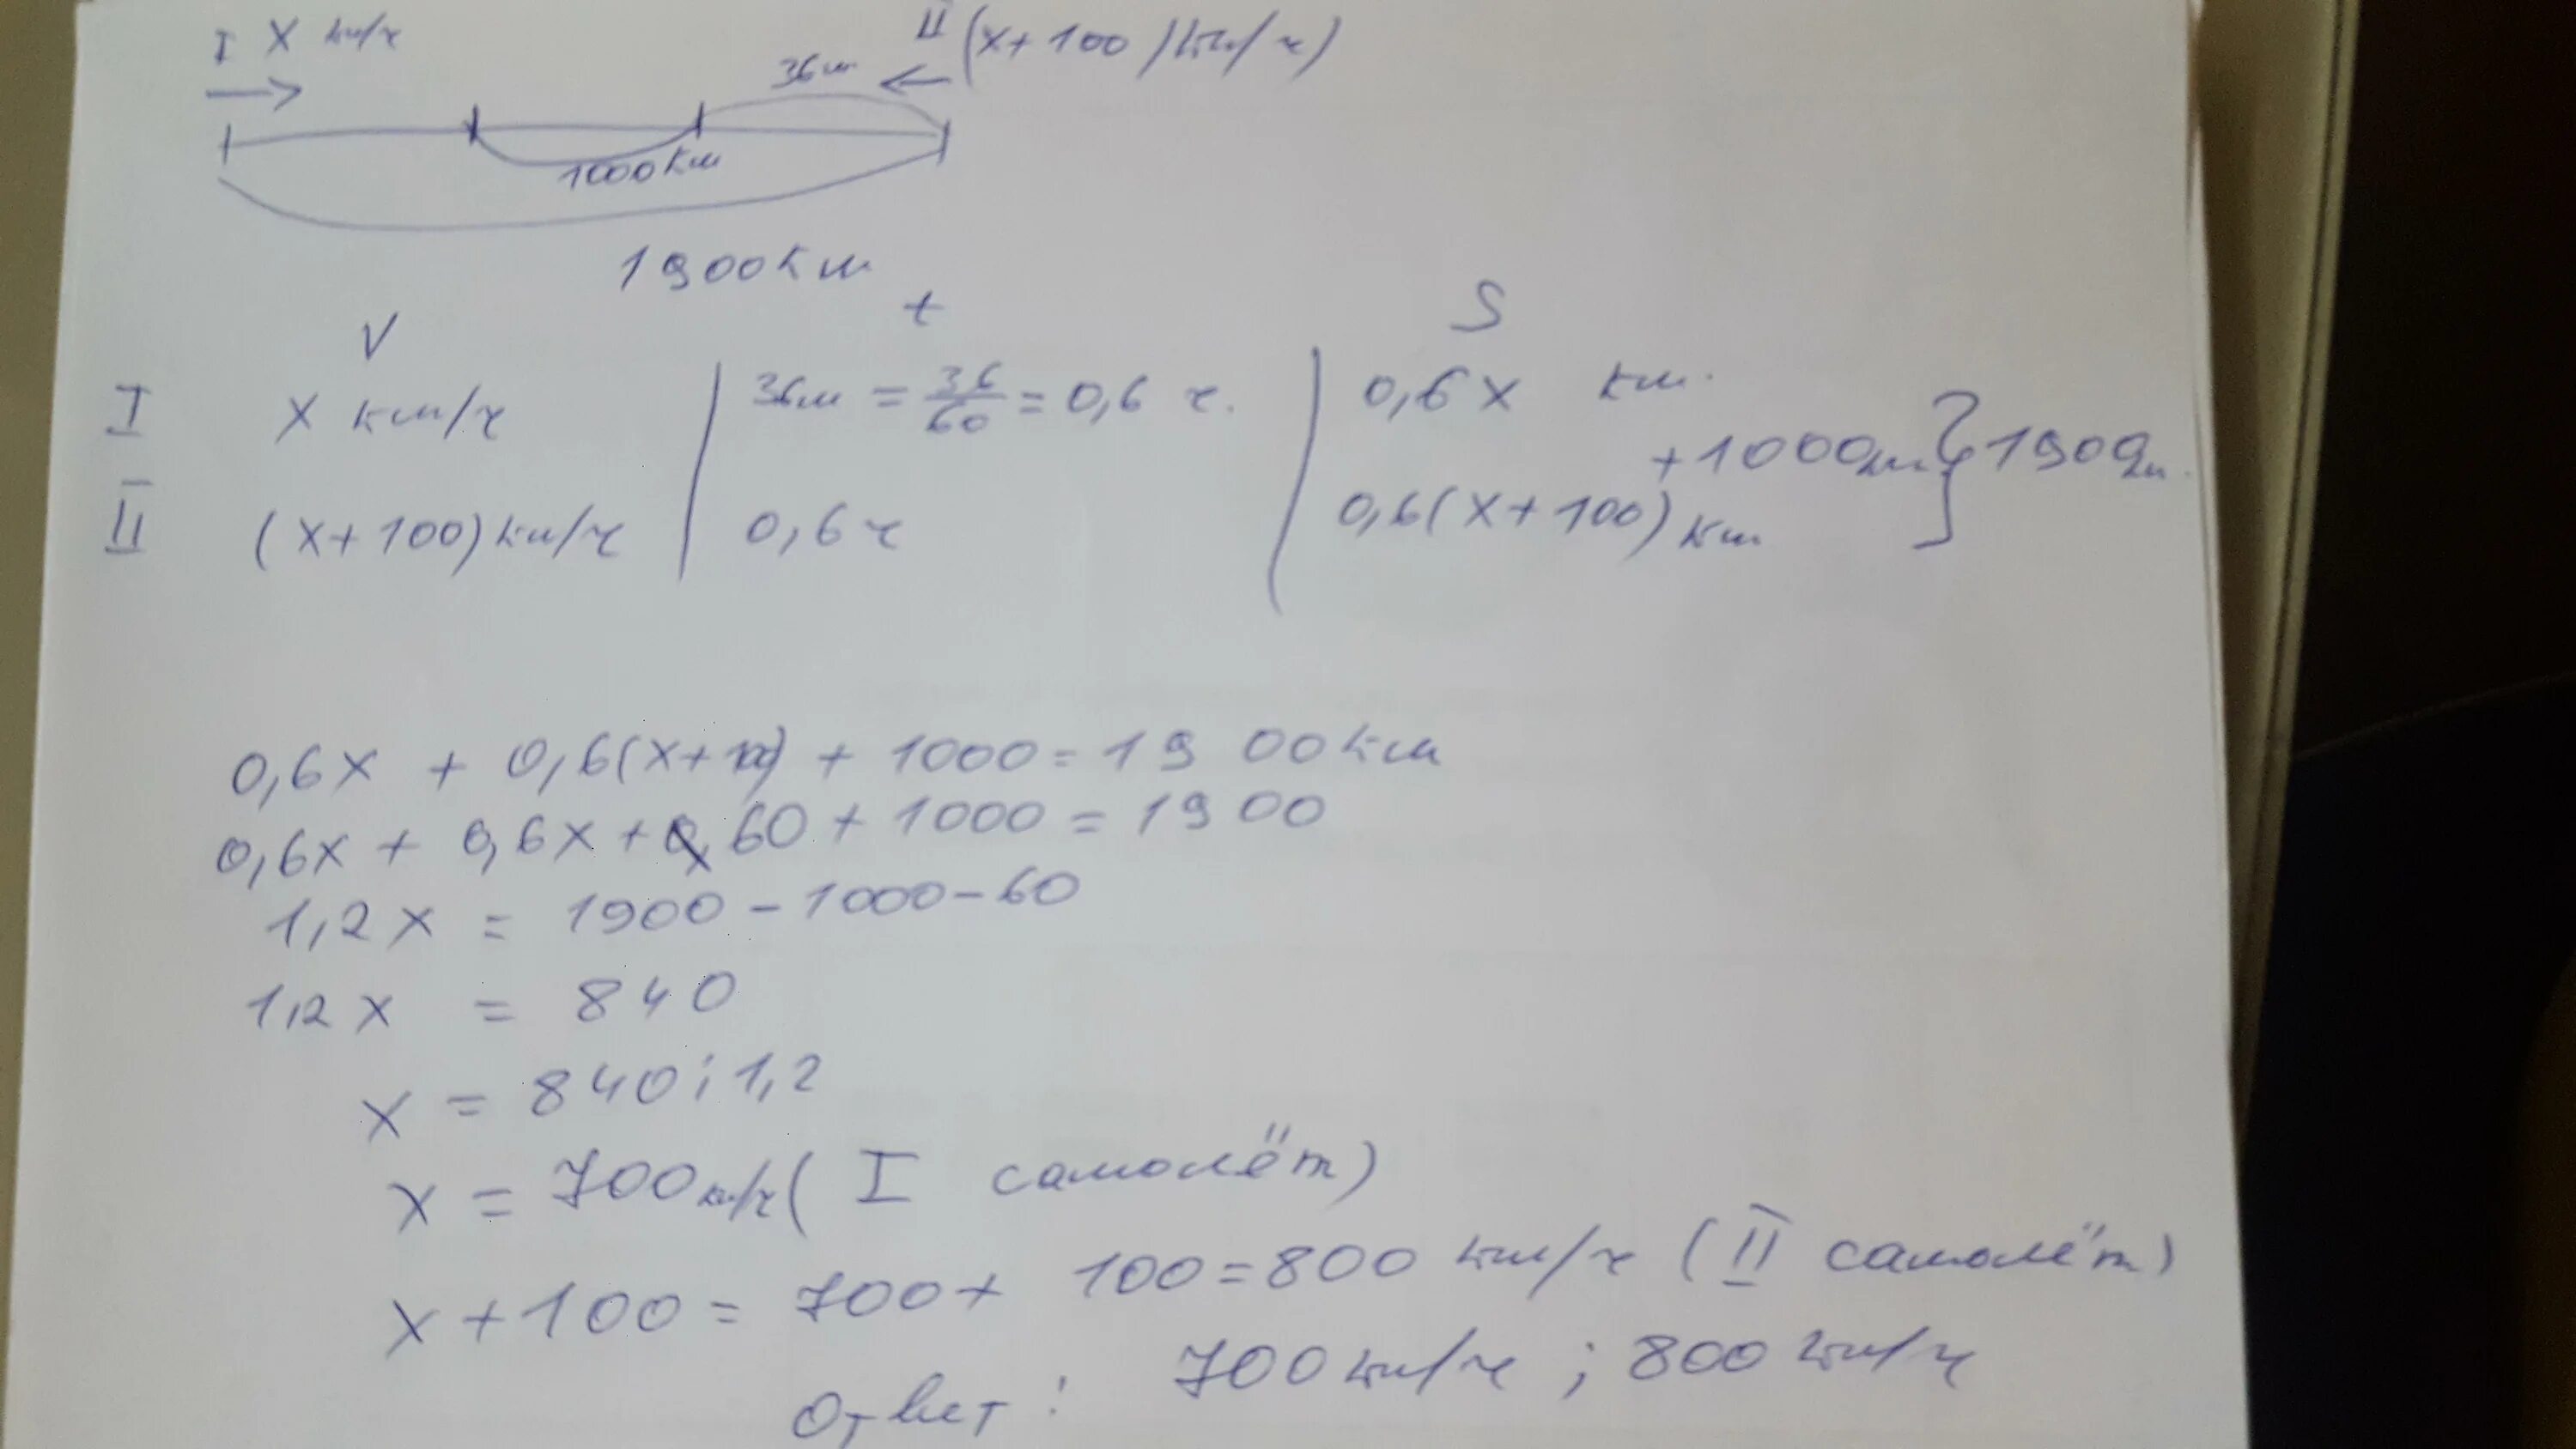 I x км/ч
36м
II (x+100) км/ч)
1000 км
1900 км
V t S
I x км/ч 36м = 36/60 = 0,6 ч. 0,6x км.
+1000км } 1900км.
II (x+100) км/ч 0,6ч 0,6(x+100) км
0,6x + 0,6(x+100) + 1000 = 1900 км
0,6x + 0,6x + 60 + 1000 = 1900
1,2x = 1900 - 1000 - 60
1,2x = 840
x = 840 : 1,2
x = 700 км/ч ( I самолёт)
x + 100 = 700 + 100 = 800 км/ч ( II самолёт)
Ответ : 700 км/ч ; 800 км/ч